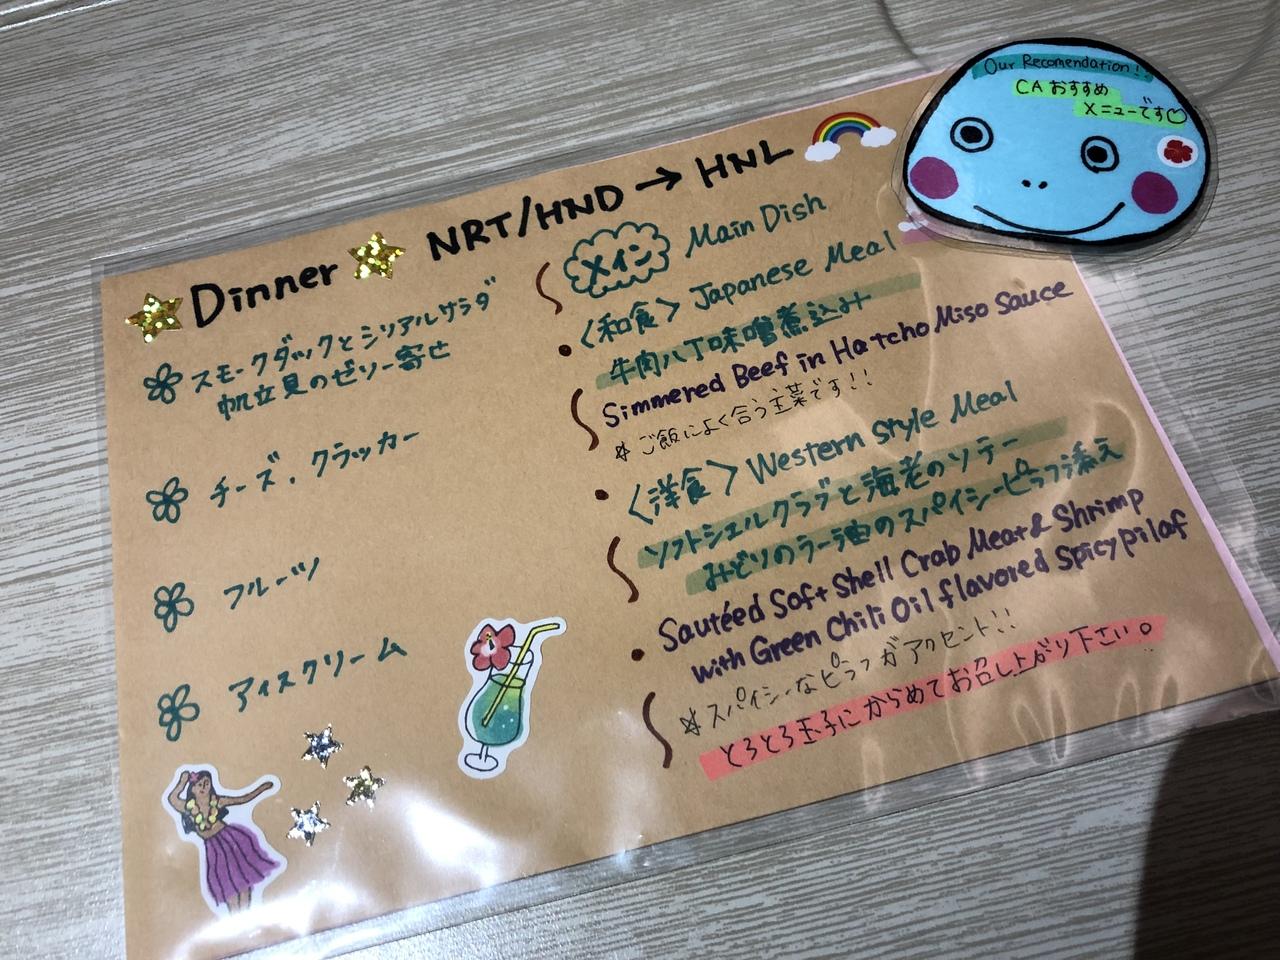 Our Recomendation!
CAおすすめ
メニューです♡
Dinner NRT/HND → HNL
スモークダックとシリアルサラダ
帆立貝のゼリー寄せ
チーズ、クラッカー
フルーツ
アイスクリーム
メイン Main Dish
〈和食〉Japanese Meal
牛肉八丁味噌煮込み
Simmered Beef in Hatcho Miso Sauce
＊ご飯によく合う主菜です!!
〈洋食〉Western Style Meal
ソフトシェルクラブと海老のソテー
みどりのラー油のスパイシーピラフ添え
Sautéed Soft Shell Crab Meat & Shrimp
with Green Chili Oil flavored Spicy pilaf
＊スパイシーなピラフがアクセント!!
とろとろ玉子にからめてお召し上がり下さい。